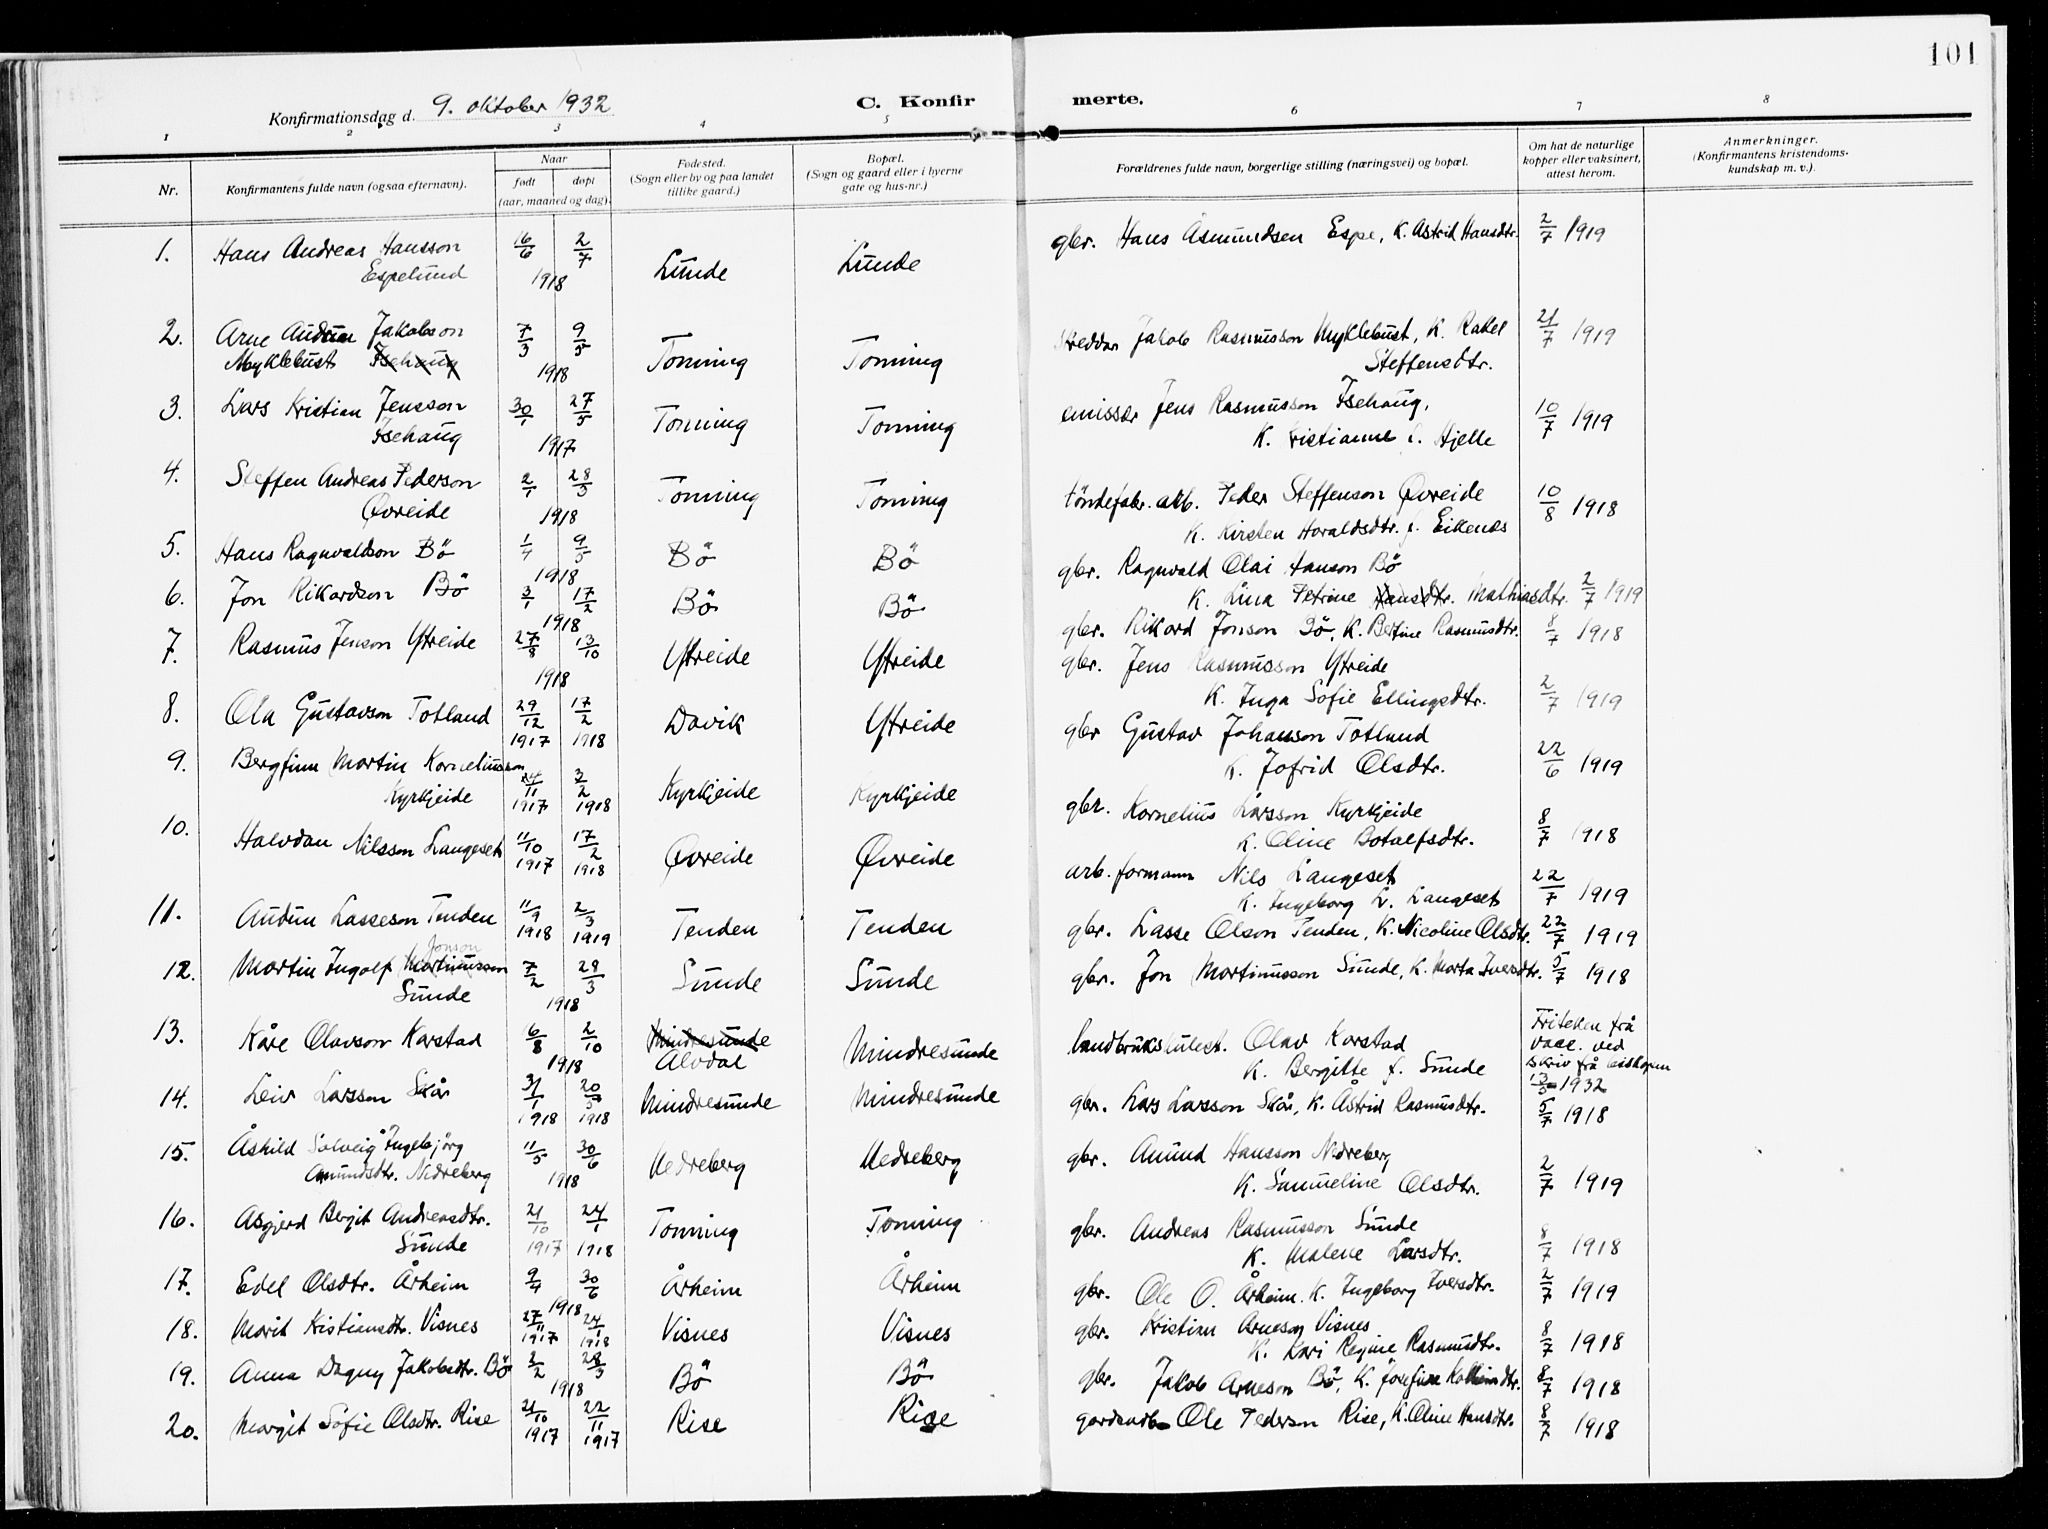 101
Konfirmationsdag d. 9. oktober 1932
C. Konfirmerte.
1 2 3 4 5 6 7 8
Nr.
Konfirmantens fulde navn (ogsaa efternavn).
Naar
født døpt
(aar, maaned og dag).
Fødested.
(Sogn eller by og paa landet
tillike gaard.)
Bopæl.
(Sogn og gaard eller i byerne
gate og hus-nr.)
Forældrenes fulde navn, borgerlige stilling (næringsvei) og bopæl.
Om hat de naturlige
kopper eller vaksinert,
attest herom.
Anmerkninger.
(Konfirmantens kristendoms-
kundskap m. v.).
1. Hans Andreas Hansson 16/6 2/7 gbr. Hans Åsmundsen Espe, K. Astrid Hansdtr. 2/7 1919
Espelund 1918 Lunde Lunde
2. Arne Audun Jakobson 7/3 9/5 Skreddar Jakob Rasmusson Myklebust, K. Rakel 21/7 1919
Myklebust Isehaug 1918 Tonning Tonning Steffensdtr.
3. Lars Kristian Jensson 30/1 27/5 Tonning Tonning emissær Jens Rasmusson Isehaug, 10/7 1919
Isehaug 1917 K. Kristianne f. Hjelle
4. Steffen Andreas Pederson 2/1 28/3 Tonning Tonning töndefabr. arb. Peder Steffenson Øvreide 10/8 1918
Øvreide 1918 K. Kirsten Haraldsdtr. f. Eikenes
5. Hans Ragnvaldson Bö 1/4 9/5 1918 Bö Bö gbr. Ragnvald Olai Hanson Bö
K. Lina Petrine Hansdtr. Mathiasdtr. 2/7 1919
6. Jon Rikardson Bö 3/1 17/2 1918 Bö Bö gbr. Rikard Jonson Bö, K. Bertine Rasmusdtr. 8/7 1918
7. Rasmus Jenson Ytreide 27/8 13/10 1918 Ytreide Ytreide gbr. Jens Rasmusson Ytreide
K. Inga Sofie Ellingsdtr. 2/7 1919
8. Ola Gustavson Totland 29/12 1917 17/2 1918 Davik Ytreide gbr Gustav Johanson Totland
K. Jofrid Olsdtr. 22/6 1919
9. Bergfinn Martin Korneliusson 24/11 1917 3/2 1918
Kyrkjeide Kyrkjeide Kyrkjeide gbr. Kornelius Larsson Kyrkjeide
K. Oline Botolfsdtr. 8/7 1918
10. Halvdan Nilsson Langeset 11/10 1917 17/2 1918 Øvreide Øvreide arb. formann Nils Langeset
K. Ingeborg L. Langeset 22/7 1919
11. Audun Lasseson Tenden 11/9 1918 2/3 1919 Tenden Tenden gbr. Lasse Olson Tenden, K. Nicoline Olsdtr. 22/7 1919
Jonson
12. Martin Ingolf Martinusson 7/2 29/3 Sunde Sunde gbr. Jon Martinusson Sunde, K. Marta Iversdtr. 5/7 1918
Sunde 1918
13. Kåre Olavson Karstad 16/8 2/10 1918 Mindresunde Mindresunde landbrukskulest. Olav Karstad Friteken frå
Alvdal K. Bergitte f. Sunde vacc. ved
skriv frå
1932
14. Leiv Larsson Skår 31/1 1918 20/5 1918 Mindresunde Mindresunde gbr. Lars Larsson Skår, K. Åstrid Rasmusdtr. 5/7 1918
15. Åshild Solveig Ingebjörg 11/5 30/6 Nedreberg Nedreberg gbr. Amund Hansson Nedreberg
Amundsdtr. Nedreberg 1918 K. Samueline Olsdtr. 2/7 1919
16. Asgjerd Bergit Andreasdtr. 21/10 1917 24/1 1918 Tonning Tonning gbr. Andreas Rasmusson Sunde
Sunde K. Malene Larsdtr. 8/7 1918
17. Edel Olsdtr. Årheim 9/4 30/6 1918 Årheim Årheim gbr. Ole O. Årheim. K. Ingeborg Iversdtr. 2/7 1919
18. Marit Kristiansdtr. Visnes 27/11 1917 24/1 1918 Visnes Visnes gbr. Kristian Arneson Visnes
K. Kari Regine Rasmusdtr. 8/7 1918
19. Anna Dagny Jakobsdtr. Bö 3/2 28/3 1918 Bö Bö gbr. Jakob Arneson Bö, K. Josefine 8/7 1918
20. Margit Sofie Olsdtr. Rise 21/10 1917 22/11 1917 Rise Rise gardsarb Ole Pederson Rise, K. Oline Hansdtr. 8/7 1918